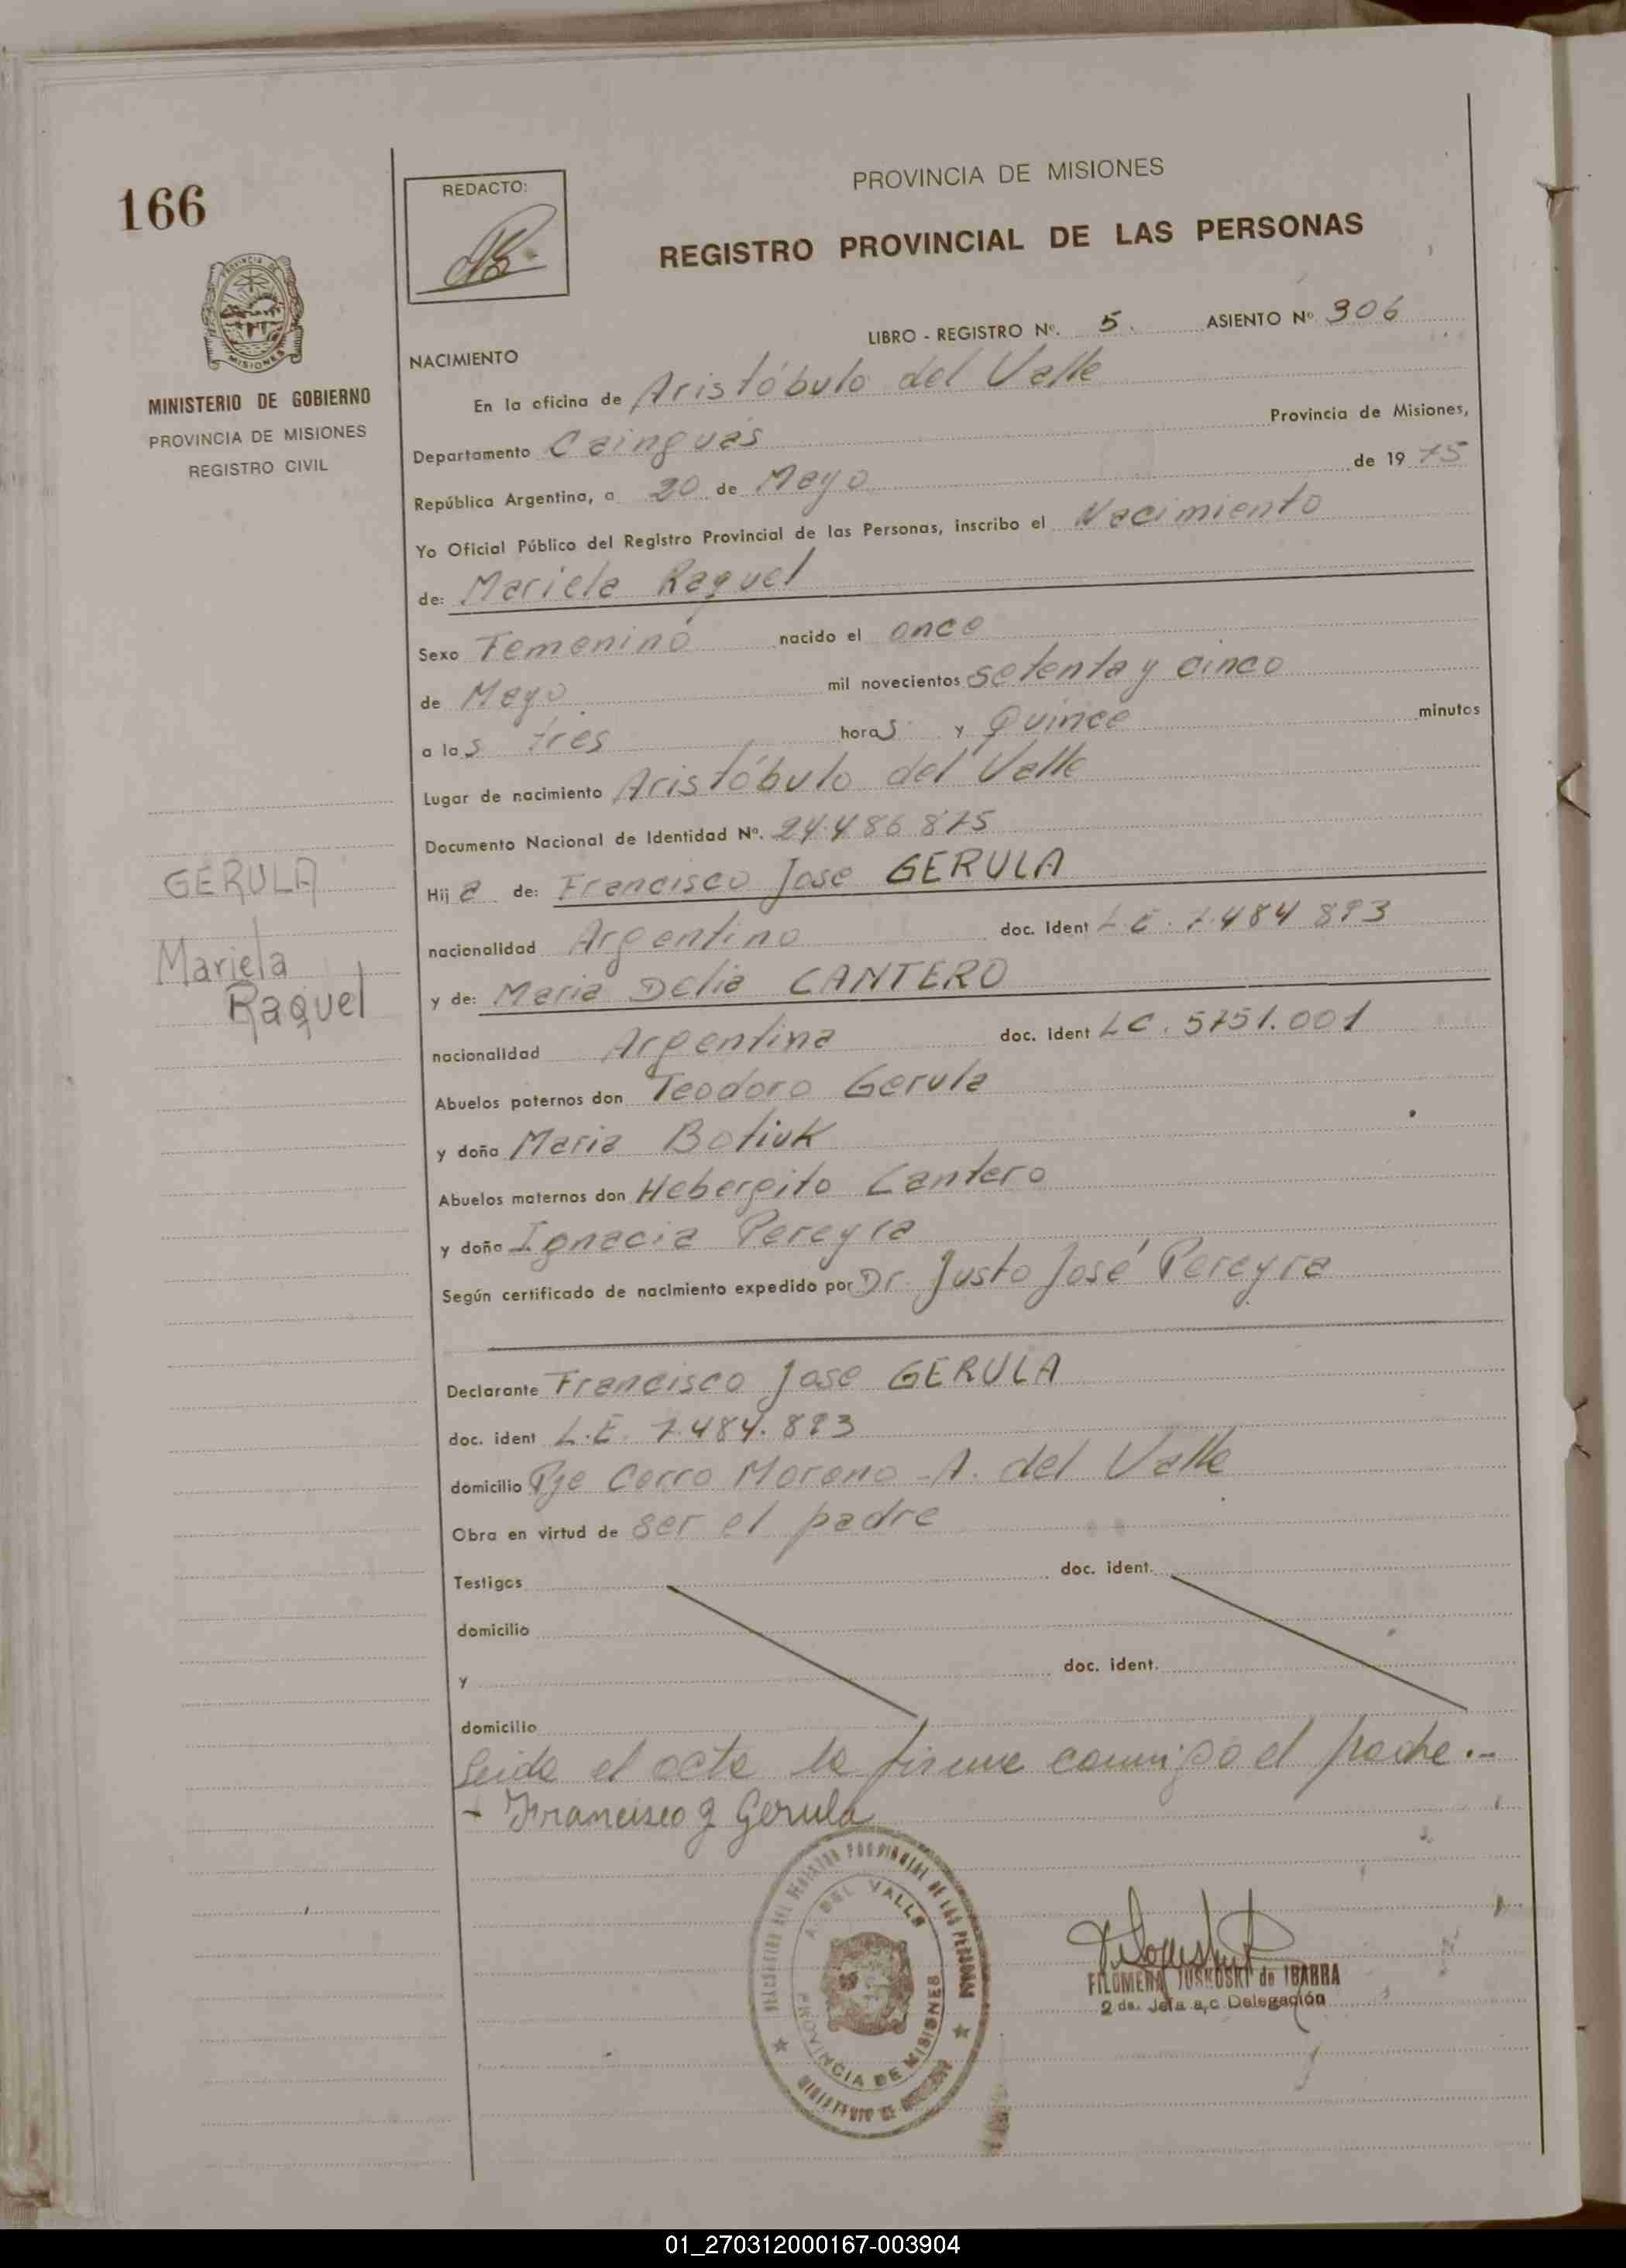 166
REDACTO:
PROVINCIA DE MISIONES
REGISTRO PROVINCIAL DE LAS PERSONAS
PROVINCIA DE
MISIONES
MINISTERIO DE GOBIERNO
PROVINCIA DE MISIONES
REGISTRO CIVIL
LIBRO - REGISTRO Nº. 5. ASIENTO Nº 306
NACIMIENTO
En la oficina de Aristóbulo del Valle
Departamento Cainguás Provincia de Misiones,
República Argentina, a 20 de Mayo de 1975
Yo Oficial Público del Registro Provincial de las Personas, inscribo el Nacimiento
de: Mariela Raquel
Sexo Femenino nacido el once
de Mayo mil novecientos setenta y cinco
a las tres horas y Quince minutos
Lugar de nacimiento Aristóbulo del Valle
Documento Nacional de Identidad Nº. 24.486 875
GERULA
Mariela
Raquel
Hija de: Francisco Jose GERULA
nacionalidad Argentino doc. Ident L.E. 7.484 893
y de: Maria Delia CANTERO
nacionalidad Argentina doc. Ident LC. 5751.001
Abuelos paternos don Teodoro Gerula
y doña Maria Botiuk
Abuelos maternos don Hebergito Cantero
y doña Ignacia Pereyra
Según certificado de nacimiento expedido por Dr. Justo José Pereyra
Declarante Francisco Jose GERULA
doc. ident L.E. 7.484.893
domicilio Pje Cerro Moreno - A. del Valle
Obra en virtud de ser el padre
Testigos doc. ident.
domicilio
y doc. ident.
domicilio
Leida el acta la firma conmigo el padre.-
- Francisco J Gerula
DELEGACION DEL REGISTRO PROVINCIAL DE LAS PERSONAS
A. DEL VALLE
PROVINCIA DE MISIONES
MINISTERIO DE GOBIERNO
FILOMENA JUSKOSKI de IBARRA
2 da. Jefa a,c Delegación
01_270312000167-003904